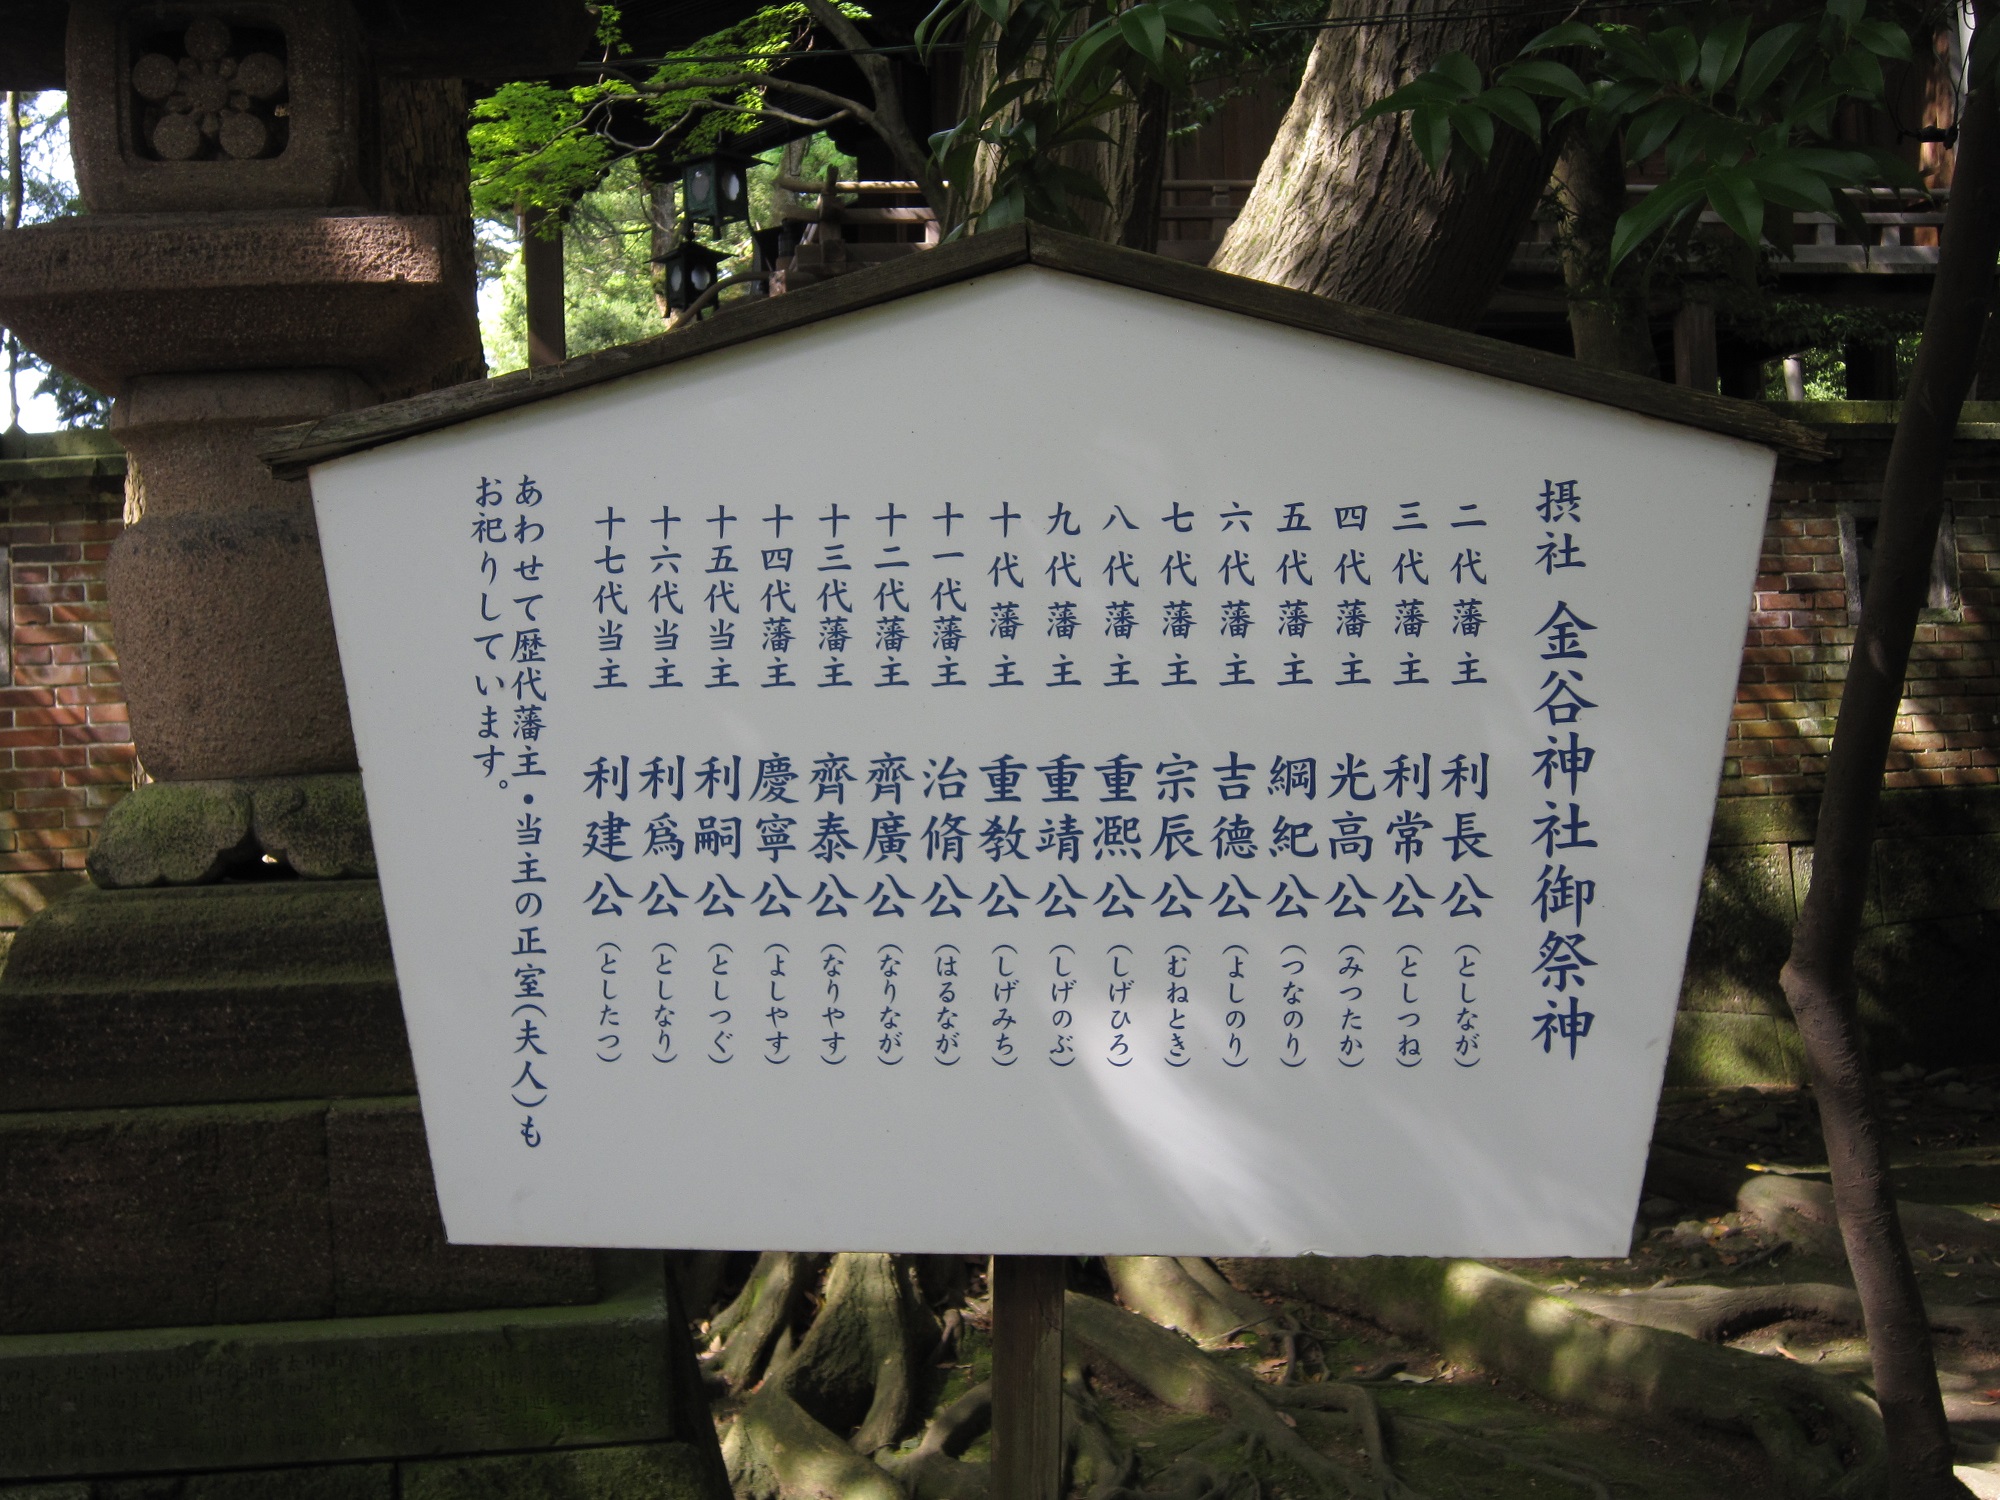 摂社 金谷神社御祭神
二代藩主 利長公（としなが）
三代藩主 利常公（としつね）
四代藩主 光高公（みつたか）
五代藩主 綱紀公（つなのり）
六代藩主 吉德公（よしのり）
七代藩主 宗辰公（むねとき）
八代藩主 重熈公（しげひろ）
九代藩主 重靖公（しげのぶ）
十代藩主 重教公（しげみち）
十一代藩主 治脩公（はるなが）
十二代藩主 齊廣公（なりなが）
十三代藩主 齊泰公（なりやす）
十四代藩主 慶寧公（よしやす）
十五代当主 利嗣公（としつぐ）
十六代当主 利爲公（としなり）
十七代当主 利建公（としたつ）
あわせて歴代藩主・当主の正室（夫人）も
お祀りしています。